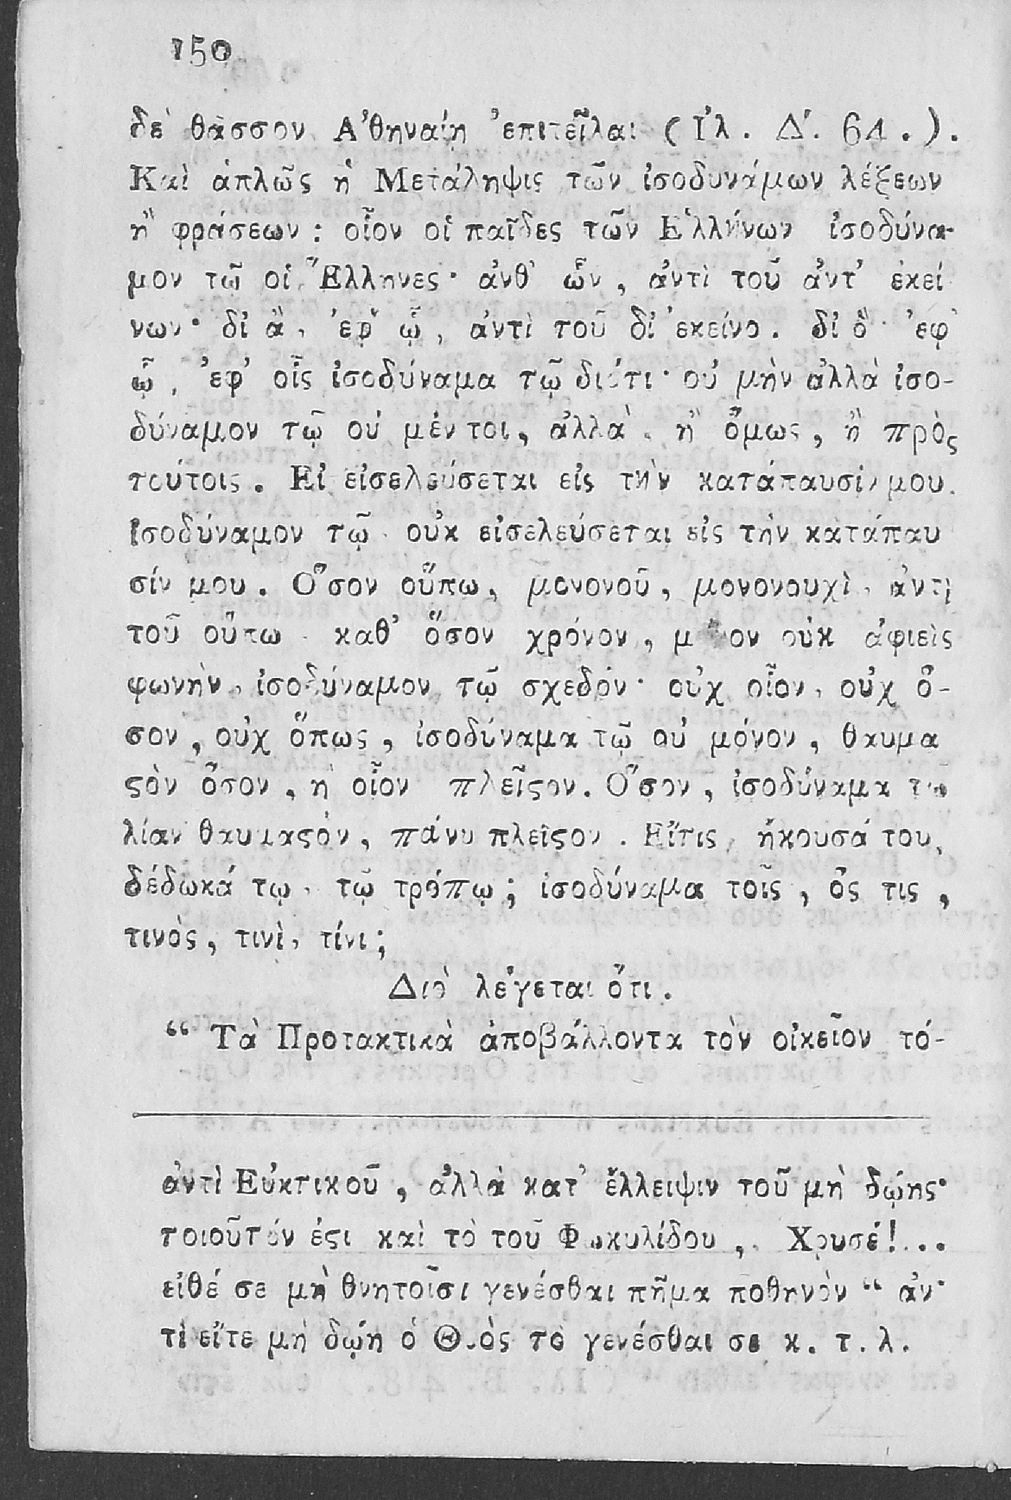 150
δὲ θᾶσσον Ἀθηναίῃ ἐπιτεῖλαι (Ἰλ. Δʹ. 64.).
Καὶ ἁπλῶς ἡ Μετάληψις τῶν ἰσοδυνάμων λέξεων
ἢ φράσεων : οἷον οἱ παῖδες τῶν Ἑλλήνων ἰσοδύνα-
μον τῶ οἱ Ἕλληνες· ἀνθ' ὧν, ἀντὶ τοῦ ἀντ' ἐκεί
νων· δι ἃ, ἐφ' ᾧ, ἀντὶ τοῦ δι ἐκείνο. δι ὃ· ἐφ'
ᾧ, ἐφ' οἷς ἰσοδύναμα τῷ διότι· οὐ μὴν ἀλλὰ ἰσο-
δύναμον τῷ οὐ μέν τοι, ἀλλὰ. ἢ ὅμως, ἢ πρὸς
τούτοις. Εἰ εἰσελεύσεται εἰς τὴν κατάπαυσίν μου.
Ἰσοδύναμον τῷ οὐκ εἰσελεύσεται εἰς τὴν κατάπαυ
σίν μου. Ὅσον οὔπω, μονονοῦ, μονονουχὶ, ἀντὶ
τοῦ οὔπω καθ' ὅσον χρόνον, μόνον οὐκ ἀφιεὶς
φωνὴν, ἰσοδύναμον τῷ σχεδὸν· οὐχ οἷον, οὐχ ὅ-
σον, οὐχ ὅπως, ἰσοδύναμα τῷ οὐ μόνον, θαυμα
ϛὸν ὅσον, ἢ οἷον πλεῖϛον. Ὅσον, ἰσοδύναμα τῷ
λίαν θαυμαϛὸν, πάνυ πλεῖϛον. Εἴτις, ἤκουσά του,
δέδωκά τῳ, τῷ τρόπῳ; ἰσοδύναμα τοῖς, ὅς τις,
τινὸς, τινὶ, τίνι;
Διὸ λέγεται ὅτι.
“ Τὰ Προτακτικὰ ἀποβάλλοντα τὸν οἰκεῖον τό-
ἀντὶ Εὐκτικοῦ, ἀλλὰ κατ' ἔλλειψιν τοῦ μὴ δῴης·
τοιοῦτόν ἐϛι καὶ τὸ τοῦ Φωκυλίδου ,, Χρυσέ!...
εἰθέ σε μὴ θνητοῖσι γενέσθαι πῆμα ποθηνὸν “ ἀν·
τὶ εἴτε μὴ δῴη ὁ Θεὸς τὸ γενέσθαι σε κ. τ. λ.